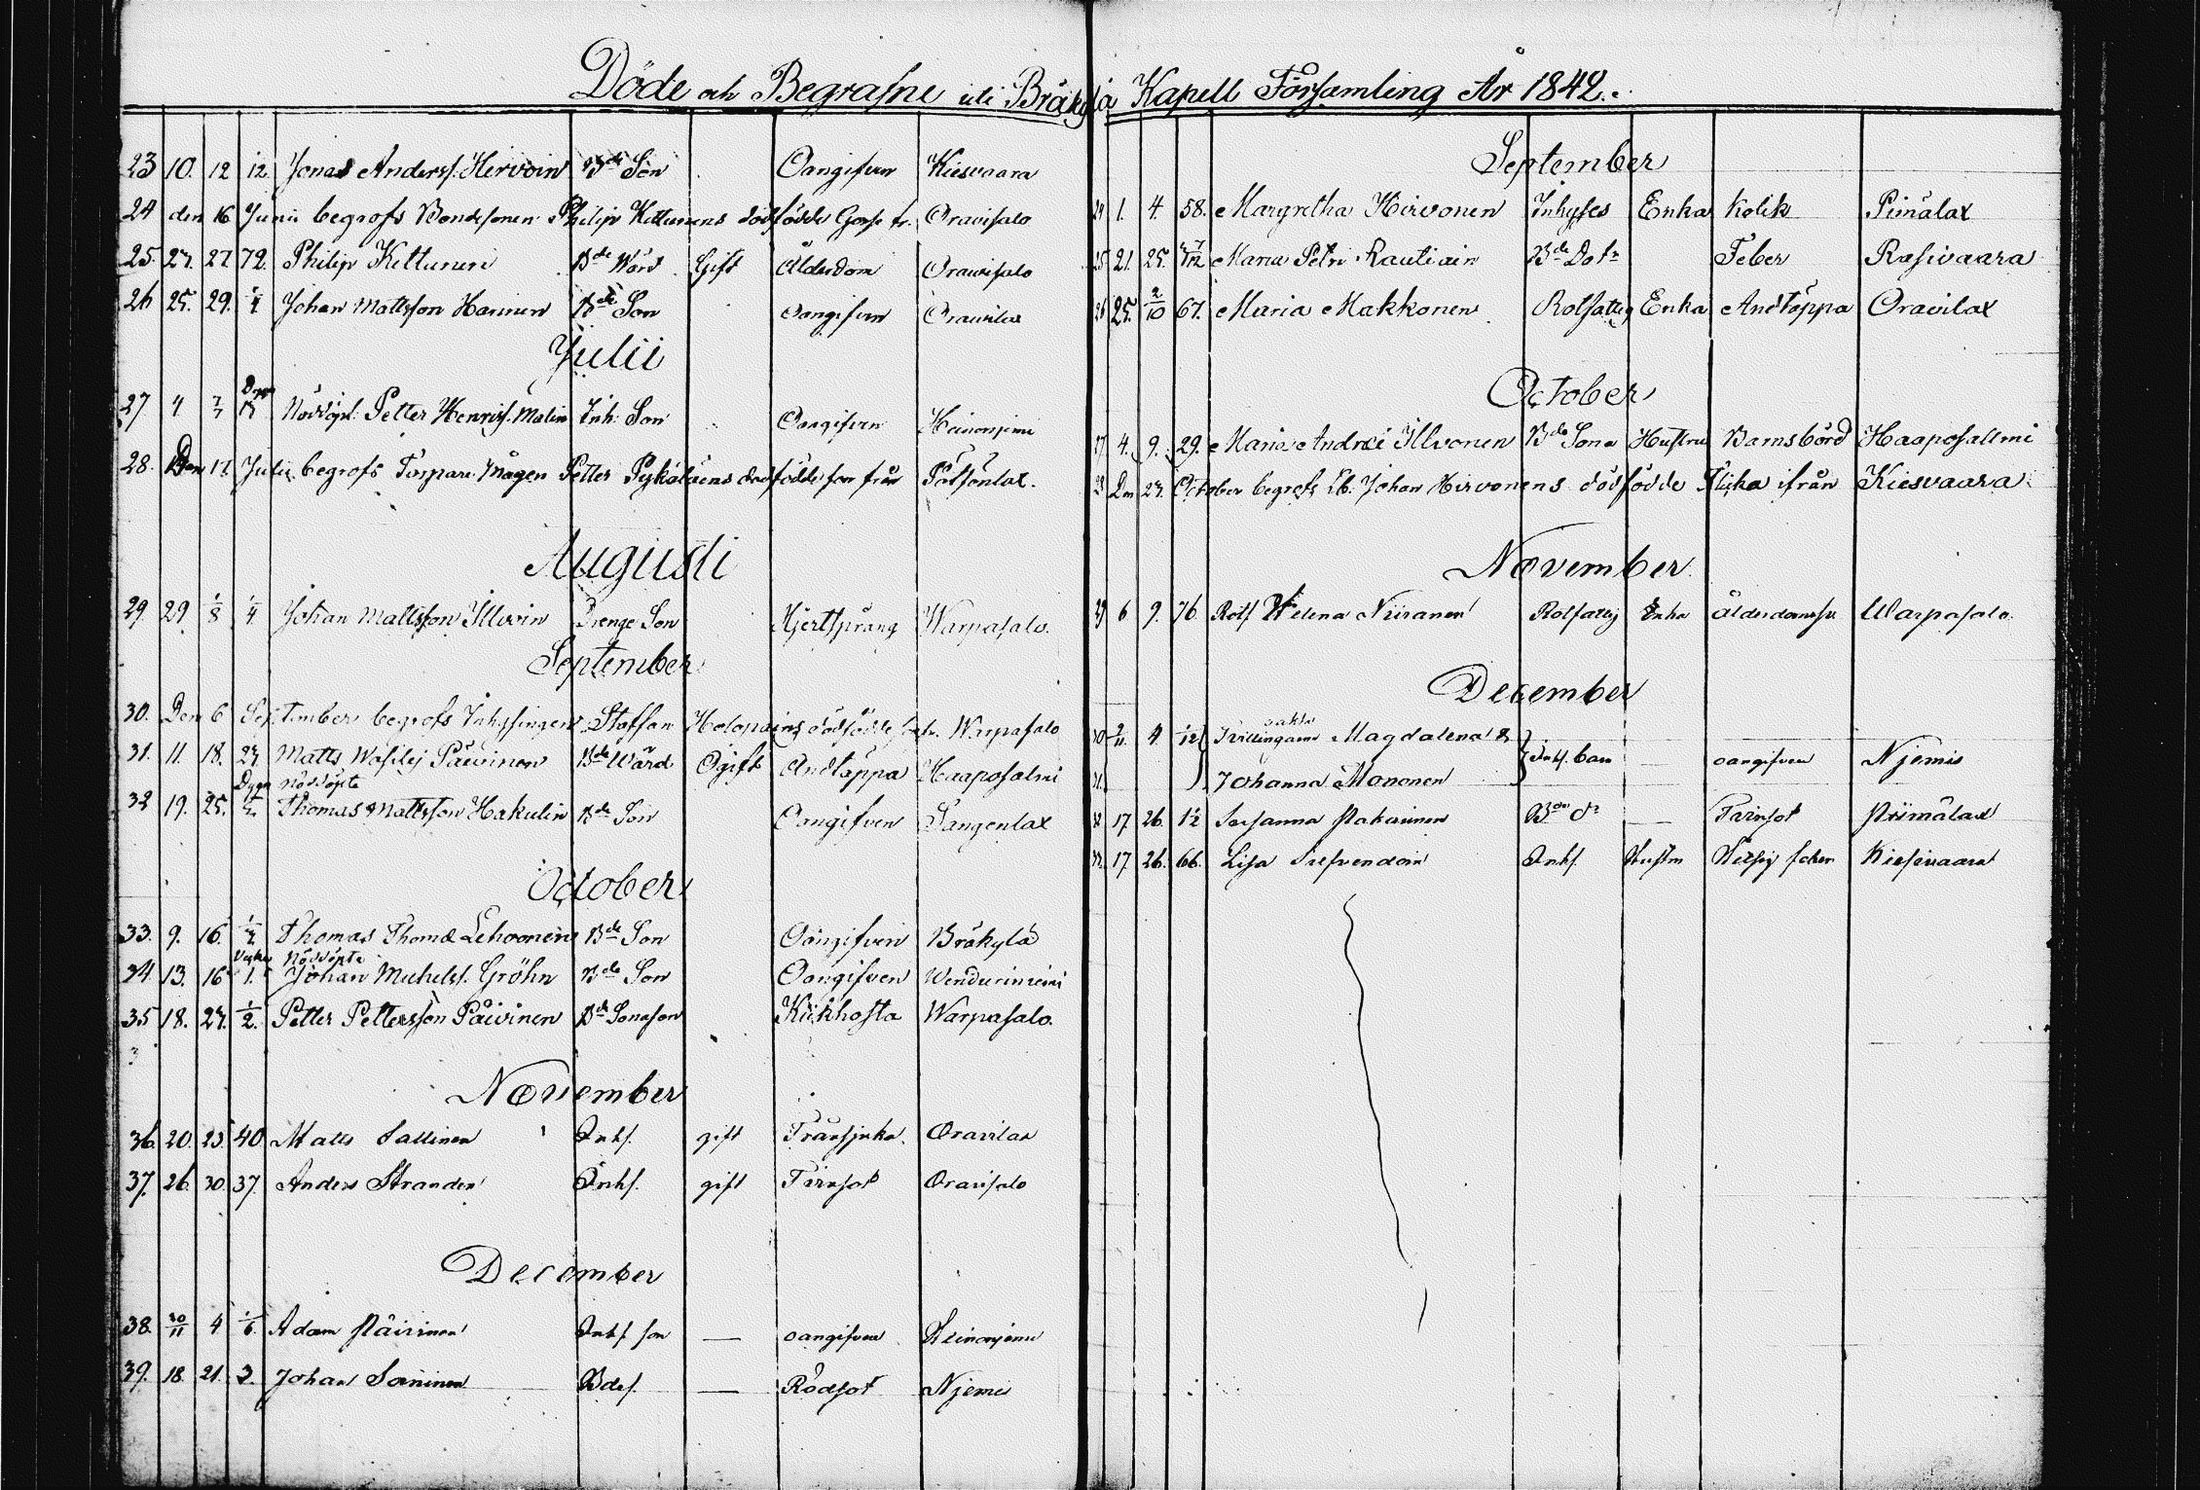 Döde och Begrafne uti Bråkylä Kapell Församling År 1842.
23 10. 12 12. Jonas Anderss. Hirvoin Bde Son Oangifven Kiesvaara
24 den 16 Junii begrofs Bondesonen Philip Kettunens dödfödde Gosse fr. Oravisalo
25. 27. 27 72. Philip Kettunen Bde Wärd Gift Ålderdom Oravisalo
26 25. 29. Johan Mattsson Hannen Bde Son oangifven Oravilax
Julii
27 4 Dygn Nöddöpt. Petter Henriss. Malin Inh. Son Oangifven Heinonjemi
28. Den 17 Julii begrofs Torpare Mågen Petter Pykäläens dödfödde son från Potsönlax.
Augusti
29. 29 1/8 1/4 Johan Mattsson Illvoin Drenge Son Hjertsprång Warpasalo.
September
30. Den 6 September begrofs Inhysingen Staffan Holopains dödfödde Warpasalo
31. 11. 18. 27 Matts Wasilij Päivinen Bde Wärd Ogift Andtäppa Haaposalmi
32 19. 25. Dygn Nöddöpte Thomas Mattsson Hakulin Bde Son Oangifven Tangenlax
October
33. 9. 16. Thomas Thomæ Lehvonen Bde Son Oangifven Bråkylä
34 13. 16 Veckor 1. Nöddöpte Johan Michelss. Gröhn Bde Son Oangifven
35 18. 27. 1/2. Petter Pettersson Päivinen Bde Sonason Kikhosta Warpasalo.
November
36. 20. 25. 40. Matts Sallinen Inhs. gift Transjuka. Oravilax
37. 26. 30. 37. Anders Stranden Inhs. gift Tärnsot Oravisalo
December
38. 30/11 4 1/6. Adam Päivinen Inhs son — oangifven Heinonjemi
39. 18. 21. 3. Johan Soninen Bdes. — Rödsot Njemis
September
24 1. 4. 58. Margretha Hirvonen Inhyses Enka Kolik Pimälax
25 21. 25. Maria Petri Rautiain Bde Dotr Feber Rasivaara
26 25. 2/10 67. Maria Makkonen Rotfattig Enka Andtäppa Oravilax
October
27 4. 9. 29. Maria Andræ Illvonen Bde Sona Hustru Barnsbörd Haaposallmi
28 Den 27. October begrofs Lb. Johan Hirvonens dödfödde Flicka ifrån Kiesvaara
November
29 6 9. 76. Rotf Helena Niiranen Rotfattig Enka Ålderdomssv. Warpasalo.
December
30 2/11. 4. 1/12 Tvillingarne Magdalena &
31. Johanna Mononen Inhs. barn — oangifven Njemis
32 17. 26. 1 1/2 Susanna Pakarinen Bde dr — Tärnsot Piimälax
33. 17. 26. 66. Lisa Inhs. Hustru Kiesivaara